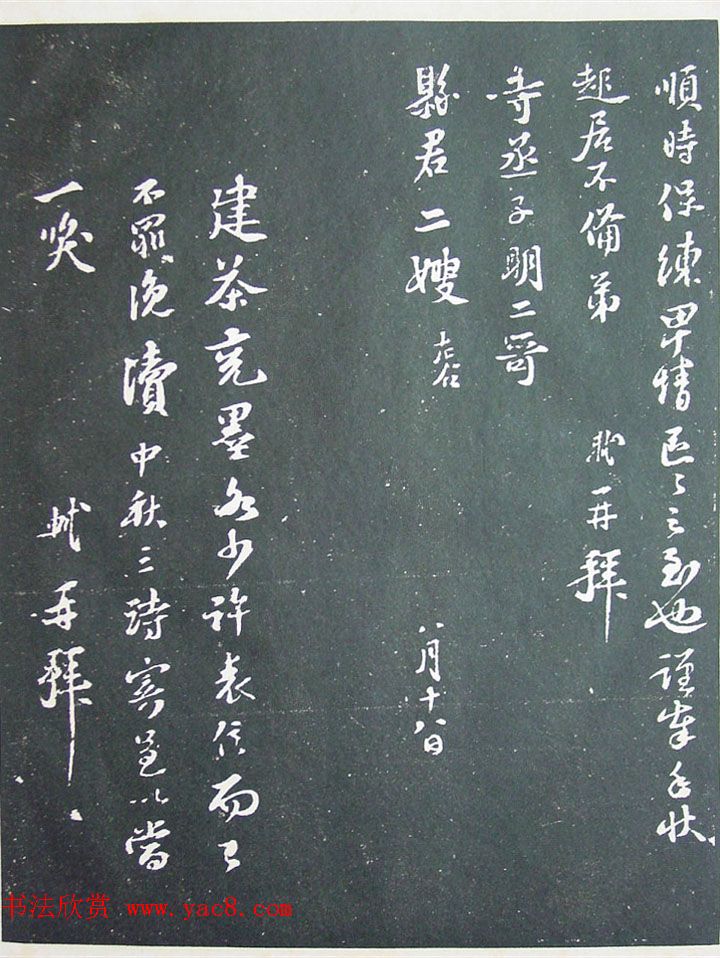 順時保練卑情區區之至也謹奉手狀
起居不備弟 軾再拜
寺丞子明二哥
縣君二嫂 八月十八日
建茶充墨各少許表信而已
不罪浼瀆中秋三詩寄呈以當
一噱
軾再拜
书法欣赏 www.yac8.com